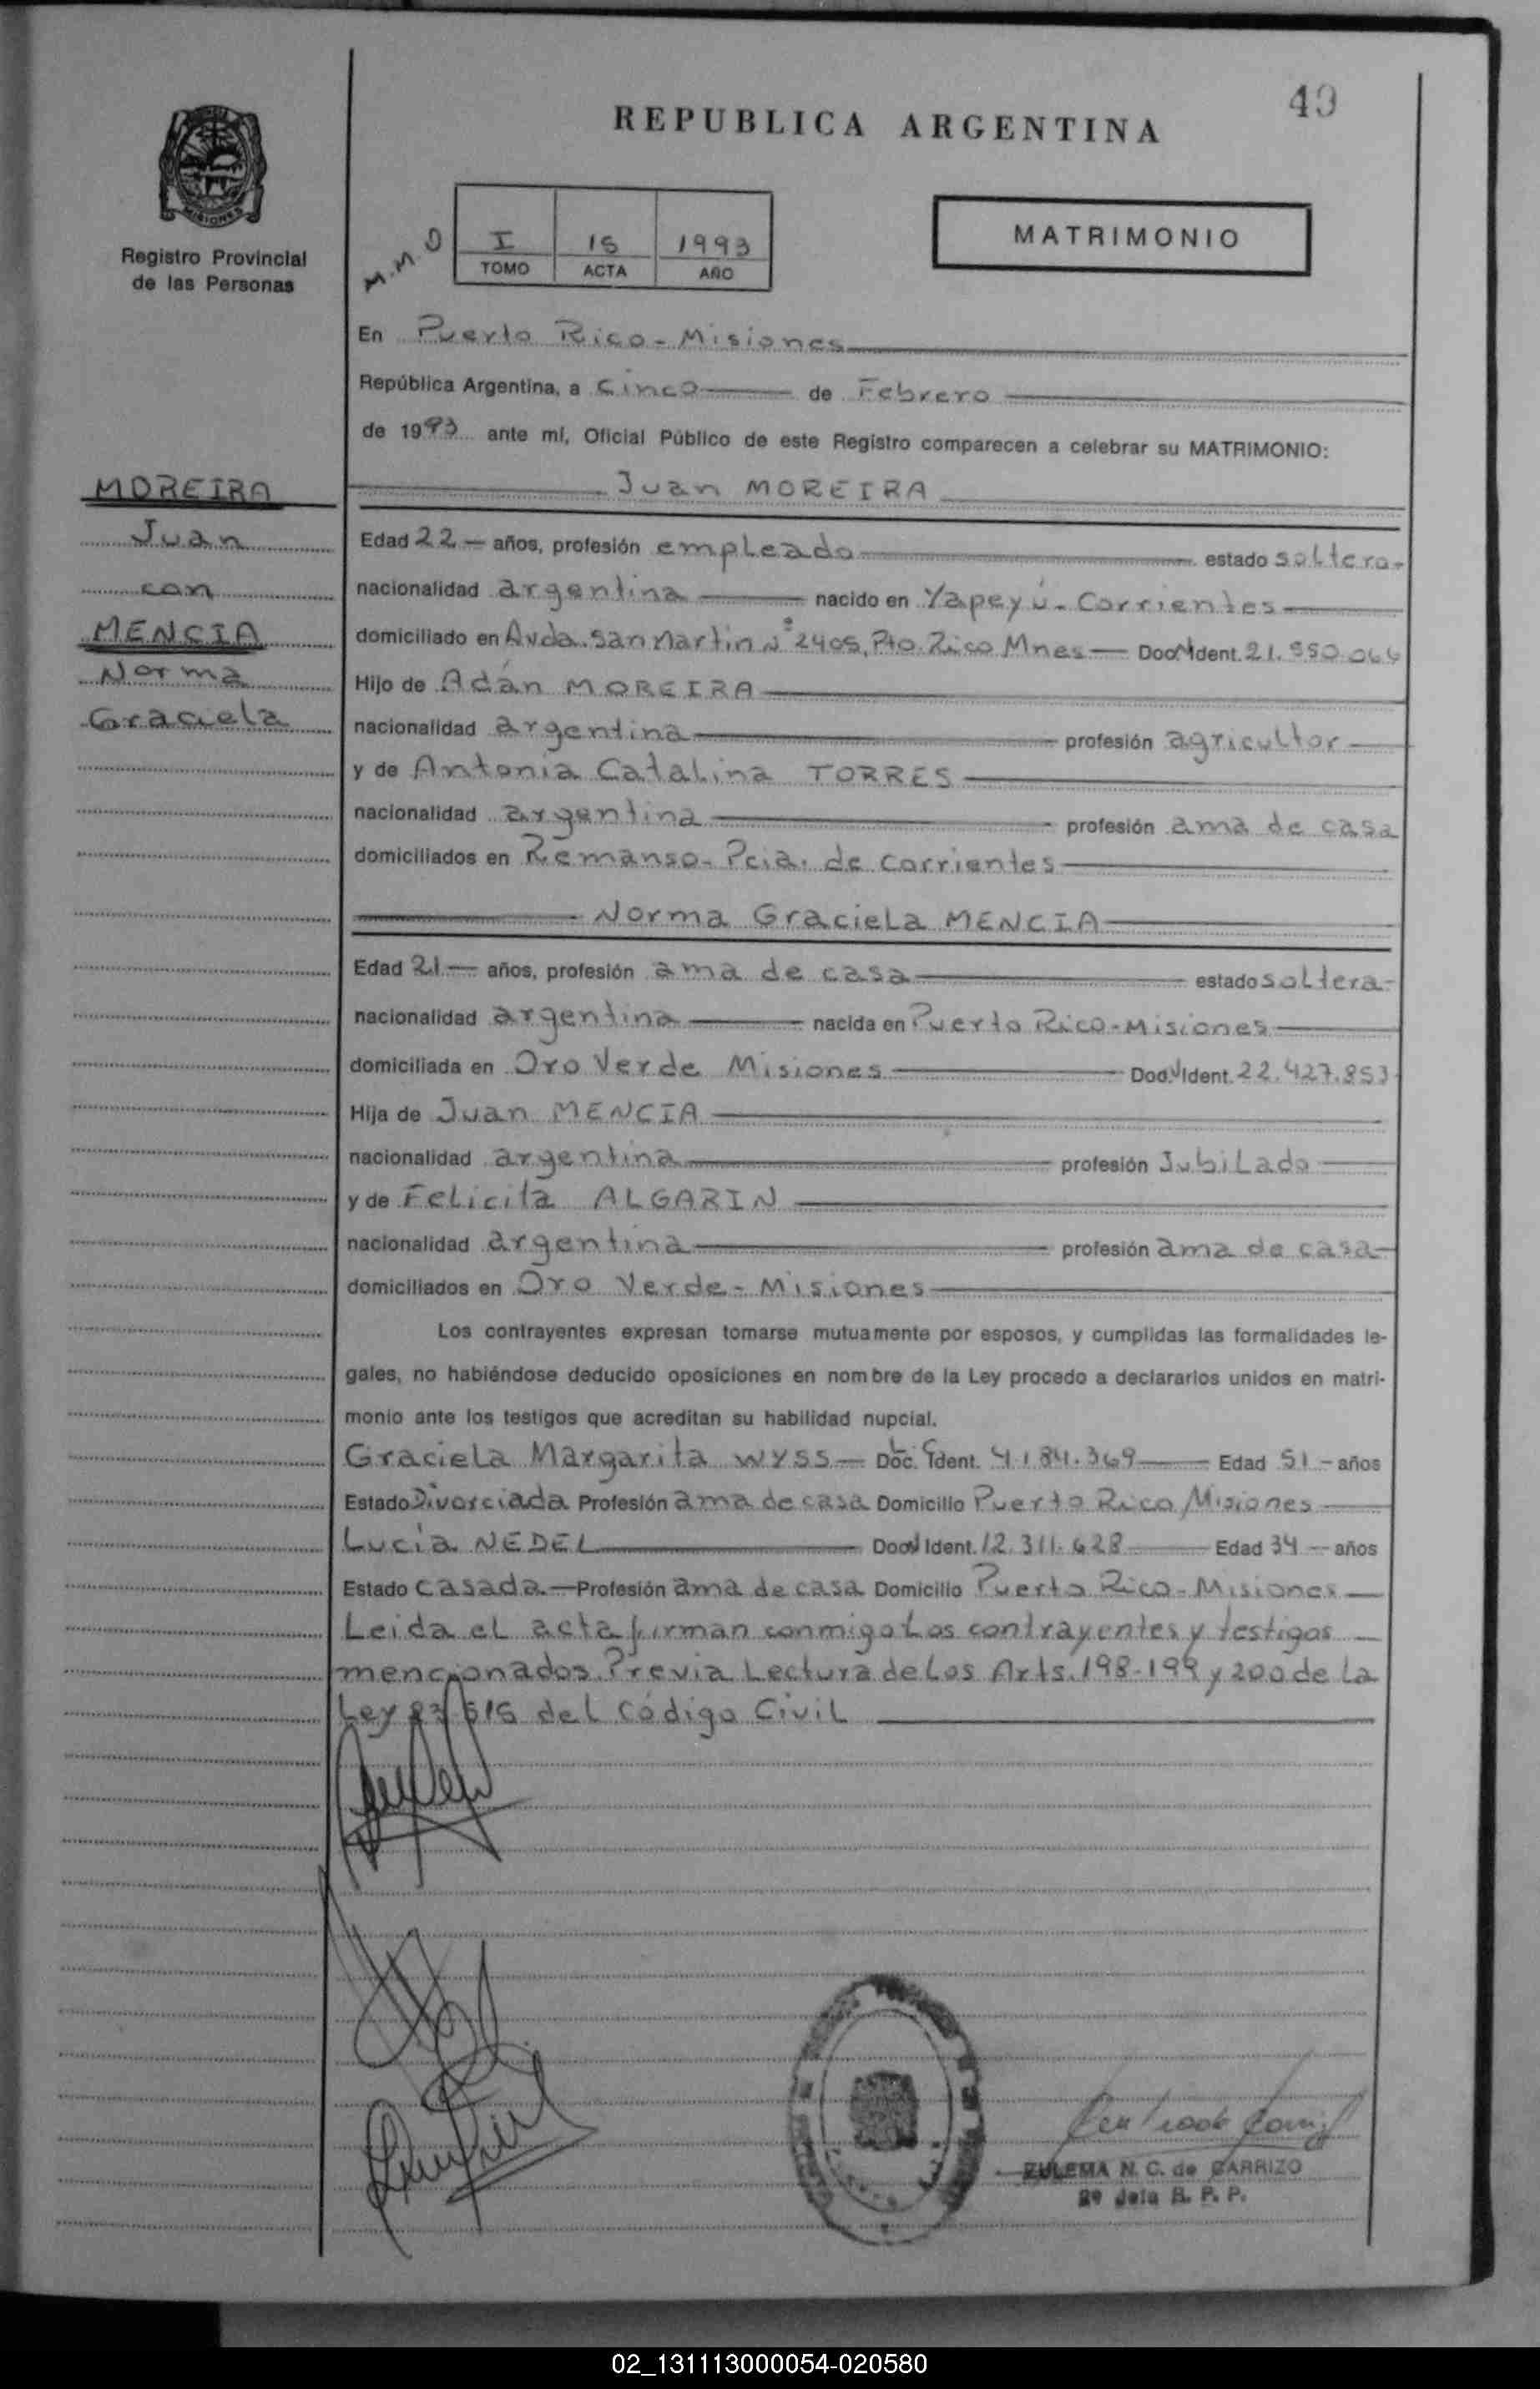 49
REPUBLICA ARGENTINA
MISIONES
Registro Provincial
de las Personas
M.M.O
I 15 1993
TOMO ACTA AÑO
MATRIMONIO
En Puerto Rico - Misiones
República Argentina, a cinco de Febrero
de 1993 ante mí, Oficial Público de este Registro comparecen a celebrar su MATRIMONIO:
MOREIRA
Juan
con
MENCIA
Norma
Graciela
Juan MOREIRA
Edad 22 años, profesión empleado estado soltero
nacionalidad argentina nacido en Yapeyú - Corrientes
domiciliado en Avda. San Martin N° 2405, Pto. Rico Mnes Doc. Ident. 21.550.066
Hijo de Adán MOREIRA
nacionalidad argentina profesión agricultor
y de Antonia Catalina TORRES
nacionalidad argentina profesión ama de casa
domiciliados en Remanso - Pcia. de Corrientes
Norma Graciela MENCIA
Edad 21 años, profesión ama de casa estado soltera
nacionalidad argentina nacida en Puerto Rico - Misiones
domiciliada en Oro Verde Misiones Doc. Ident. 22.427.853
Hija de Juan MENCIA
nacionalidad argentina profesión Jubilado
y de Felicita ALGARIN
nacionalidad argentina profesión ama de casa
domiciliados en Oro Verde - Misiones
Los contrayentes expresan tomarse mutuamente por esposos, y cumplidas las formalidades le-
gales, no habiéndose deducido oposiciones en nombre de la Ley procedo a declararlos unidos en matri-
monio ante los testigos que acreditan su habilidad nupcial.
Graciela Margarita WYSS Doc. Ident. L.C. 4.184.369 Edad 51 años
Estado Divorciada Profesión ama de casa Domicilio Puerto Rico Misiones
Lucía NEDEL Doc. Ident. 12.311.628 Edad 34 años
Estado casada Profesión ama de casa Domicilio Puerto Rico - Misiones
Leida el acta firman conmigo los contrayentes y testigos
mencionados. Previa Lectura de los Arts. 198-199 y 200 de la
Ley 23.515 del Código Civil
ZULEMA N. C. de CARRIZO
2º Jefa R. P. P.
02_131113000054-020580